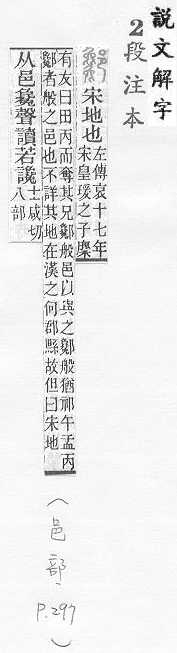 説文解字
2段注本
宋地也左傳哀十七年
宋皇瑗之子麇
有友曰田丙而奪其兄酁般邑以與之酁般猶祁午盂丙
酁者般之邑也不詳其地在漢之何郡縣故但曰宋地
从邑毚聲讀若讒士咸切
八部
(邑部、P.297)